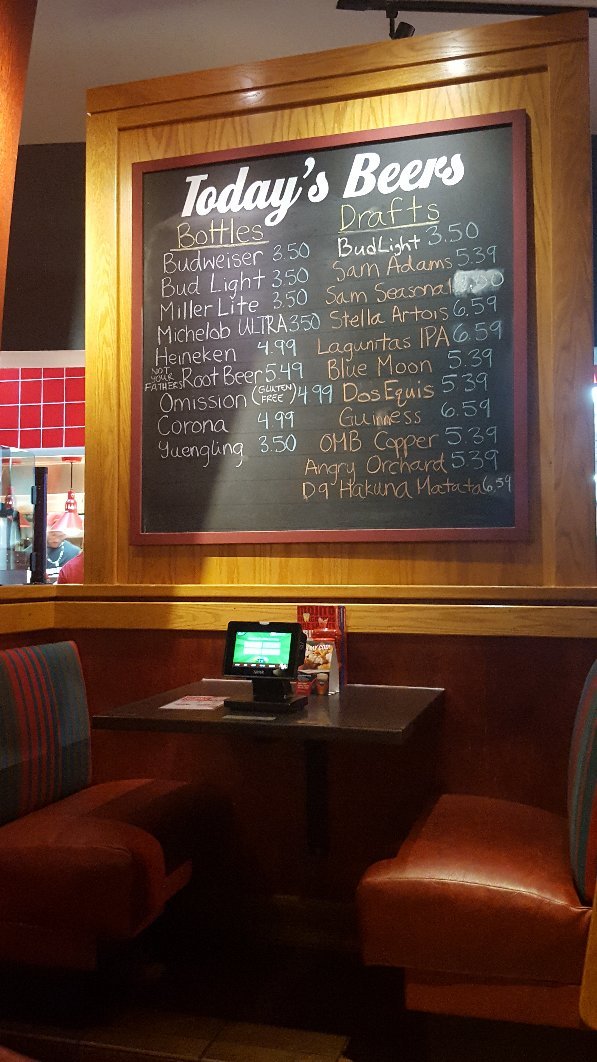 Today's Beers
Bottles
Budweiser 3.50
Bud Light 3.50
Miller Lite 3.50
Michelob ULTRA 3.50
Heineken 4.99
NOT YOUR FATHERS Root Beer 5.49
Omission (GLUTEN FREE) 4.99
Corona 4.99
Yuengling 3.50
Drafts
Bud Light 3.50
Sam Adams 5.39
Sam Seasonal
Stella Artois 6.59
Lagunitas IPA 6.59
Blue Moon 5.39
Dos Equis 5.39
Guinness 6.59
OMB Copper 5.39
Angry Orchard 5.39
D9 Hakuna Matata 6.59